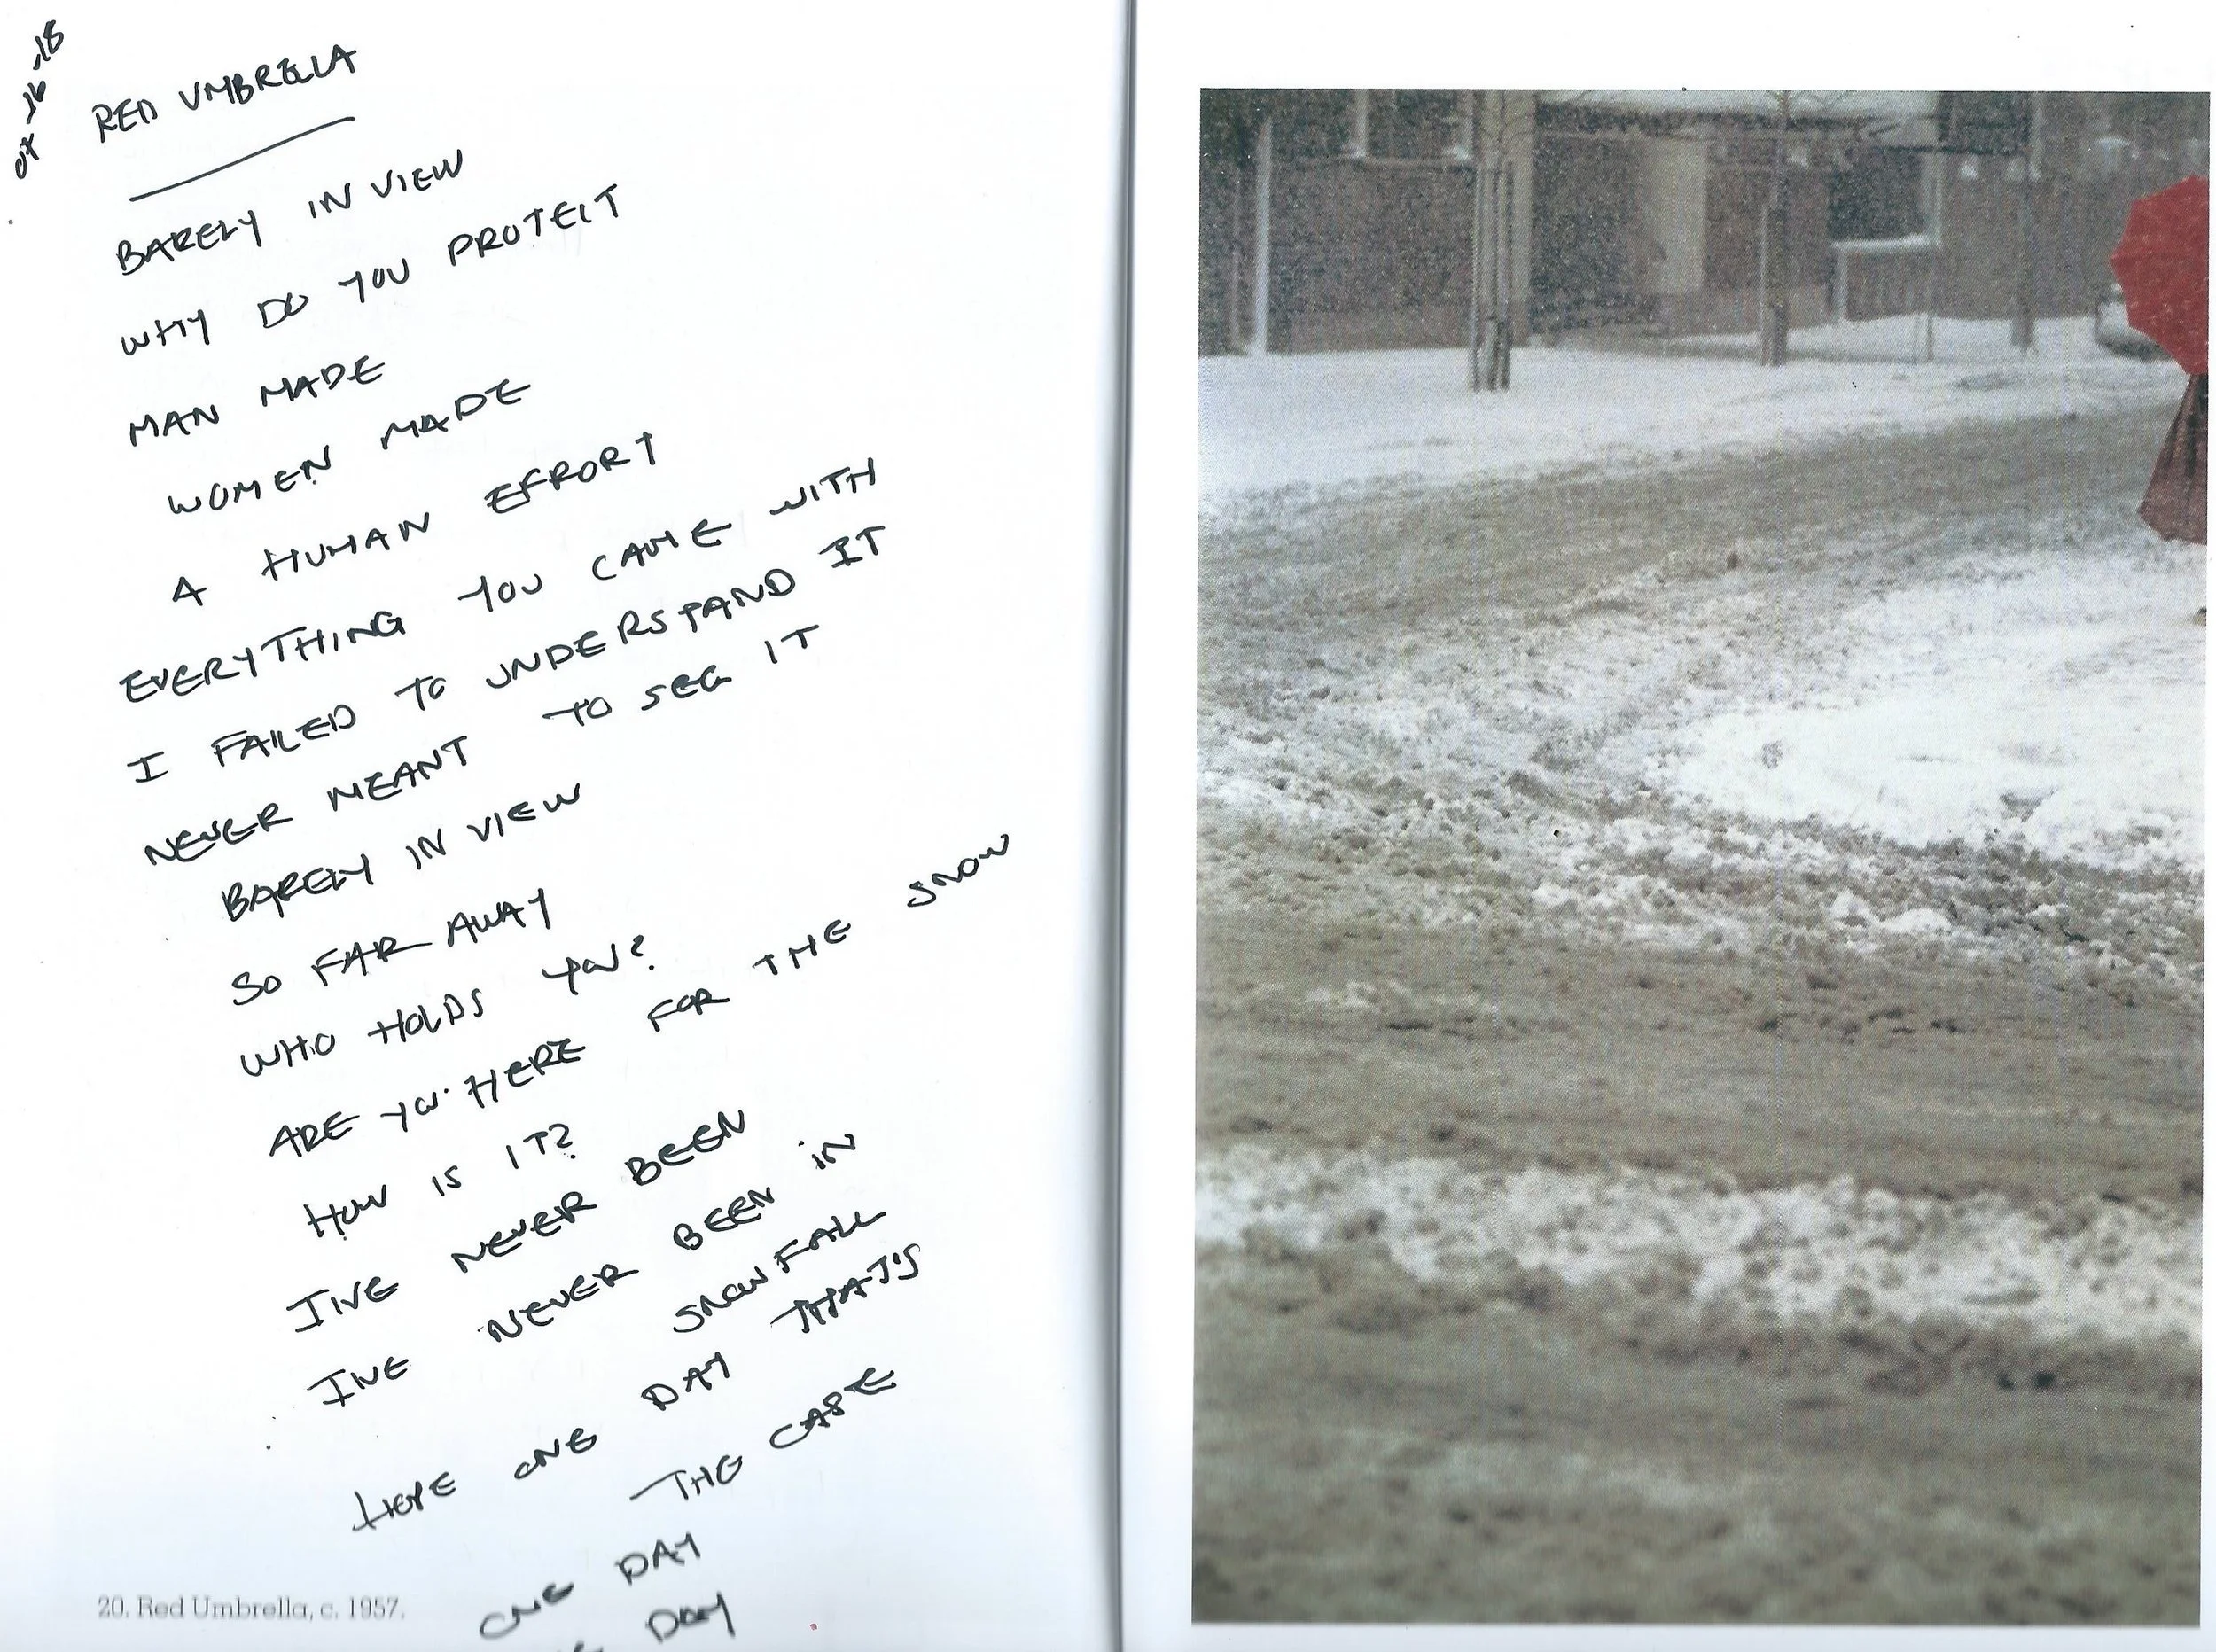 07-16-18
RED UMBRELLA
BARELY IN VIEW
WHY DO YOU PROTECT
MAN MADE
WOMEN MADE
A HUMAN EFFORT
EVERYTHING YOU CAME WITH
I FAILED TO UNDERSTAND IT
NEVER MEANT TO SEE IT
BARELY IN VIEW
SO FAR AWAY
WHO HOLDS YOU?
ARE YOU HERE FOR THE SNOW
HOW IS IT?
I'VE NEVER BEEN
I'VE NEVER BEEN IN
SNOWFALL
HOPE ONE DAY THAT'S
THE CASE
ONE DAY
DAY
20. Red Umbrella, c. 1957.